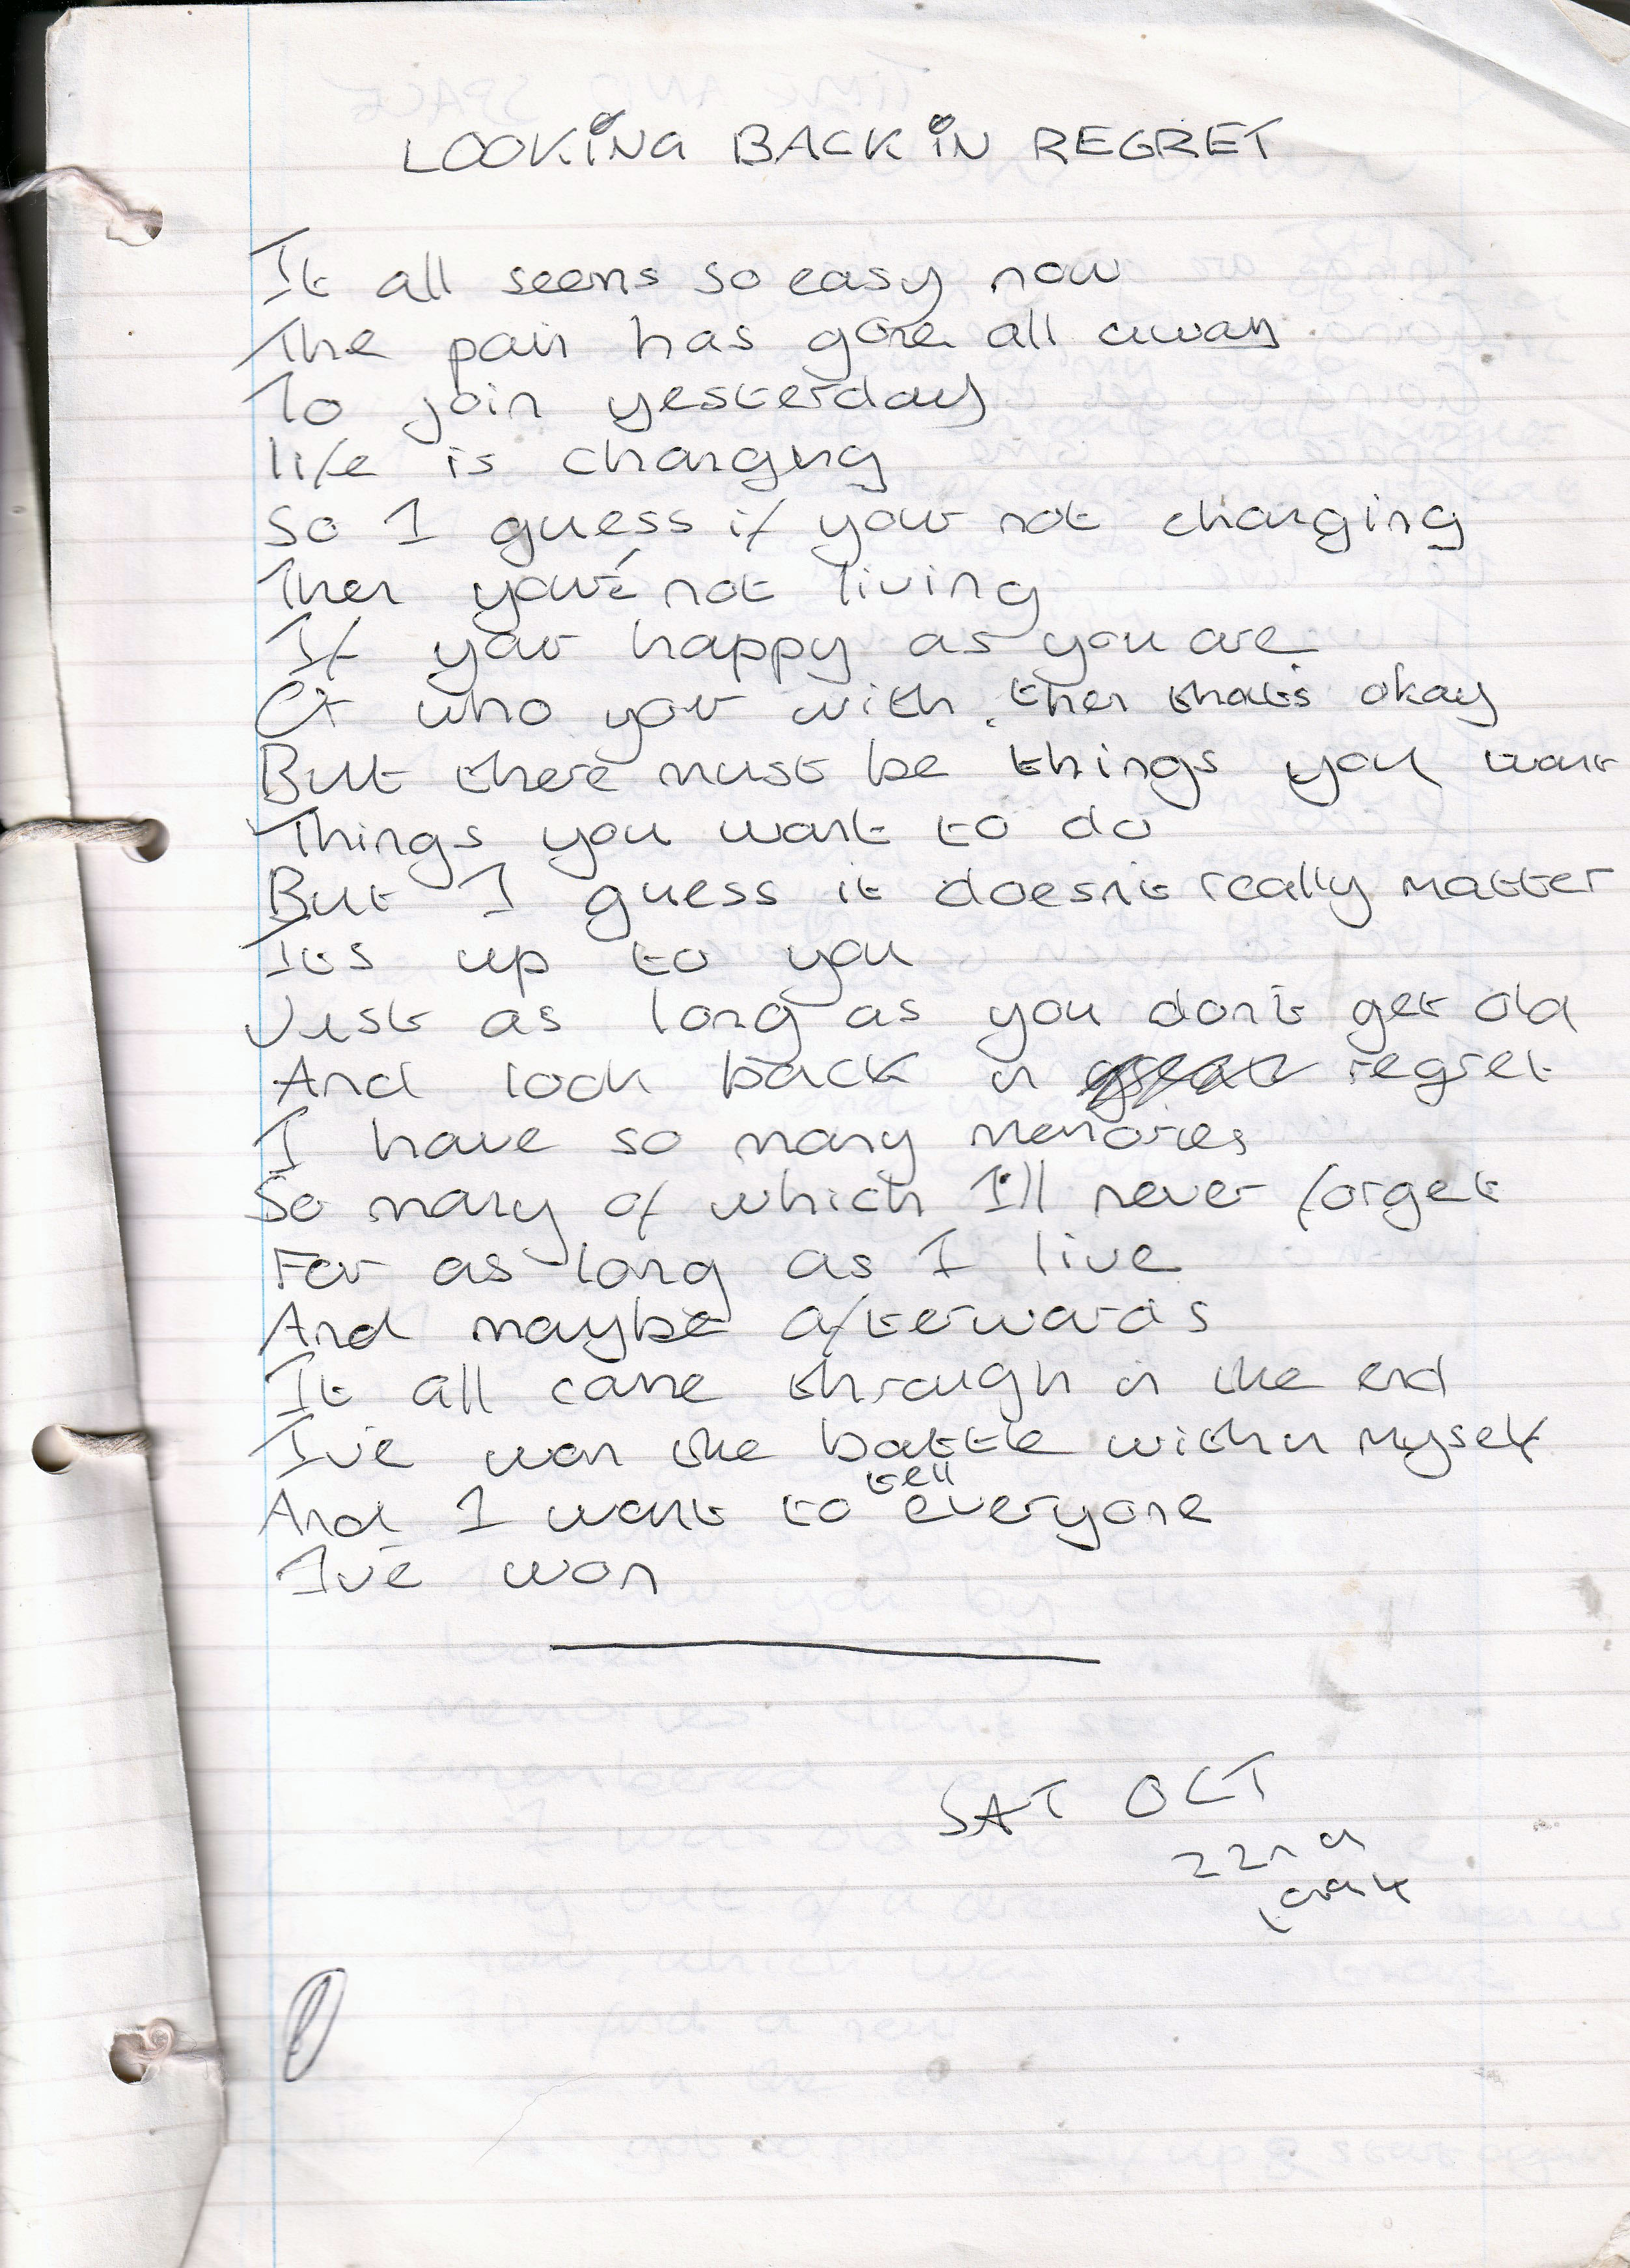 LOOKING BACK IN REGRET
It all seems so easy now
The pain has gone all away
To join yesterday
life is changing
So I guess if your not changing
Then your'e not living
If your happy as you are
Or who your with then thats okay
But there must be things you want
Things you want to do
But I guess it doesn't really matter
Its up to you
Just as long as you don't get old
And look back in regret
I have so many memories
So many of which I'll never forget
For as long as I live
And maybe afterwards
It all came through in the end
I've won the battle within myself
And I want to tell everyone
I've won
SAT OCT
22nd